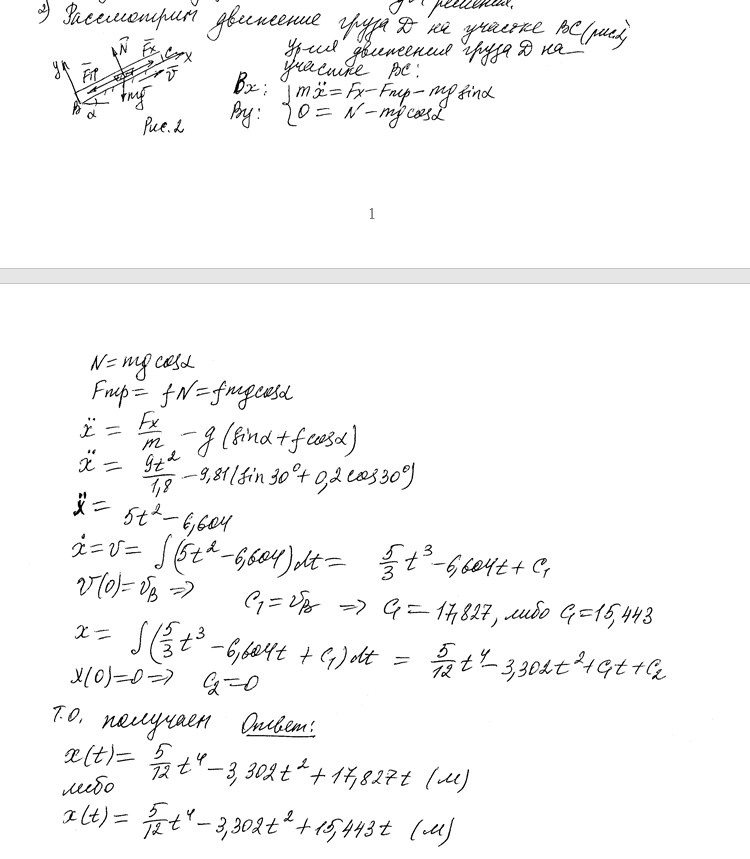 2) Рассмотрим движение груза D на участке BC (рис2)
Ур-ия движения груза D на
участке BC:
y N Fx C x
Fтр V
B α mg
Рис. 2
Bx: mẍ = Fx – Fтр – mg sinα
By: 0 = N – mg cosα
1
N = mg cosα
Fтр = fN = fmg cosα
ẍ = Fx/m – g (sinα + f cosα)
ẍ = 9t²/1,8 – 9,81(sin 30° + 0,2 cos 30°)
ẍ = 5t² – 6,604
ẋ = v = ∫(5t² – 6,604)dt = 5/3 t³ – 6,604t + C₁
v(0) = v_B => C₁ = v_B => C₁ = 17,827, либо C₁ = 15,443
x = ∫(5/3 t³ – 6,604t + C₁)dt = 5/12 t⁴ – 3,302t² + C₁t + C₂
x(0) = 0 => C₂ = 0
Т.О. получаем Ответ:
x(t) = 5/12 t⁴ – 3,302t² + 17,827t (м)
либо
x(t) = 5/12 t⁴ – 3,302t² + 15,443t (м)